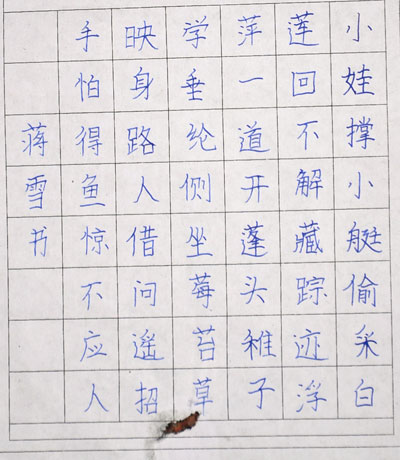 小娃撑小艇偷采白
莲回不解藏踪迹浮
萍一道开蓬头稚子
学垂纶侧坐莓苔草
映身路人借问遥招
手怕得鱼惊不应人
蒋雪书